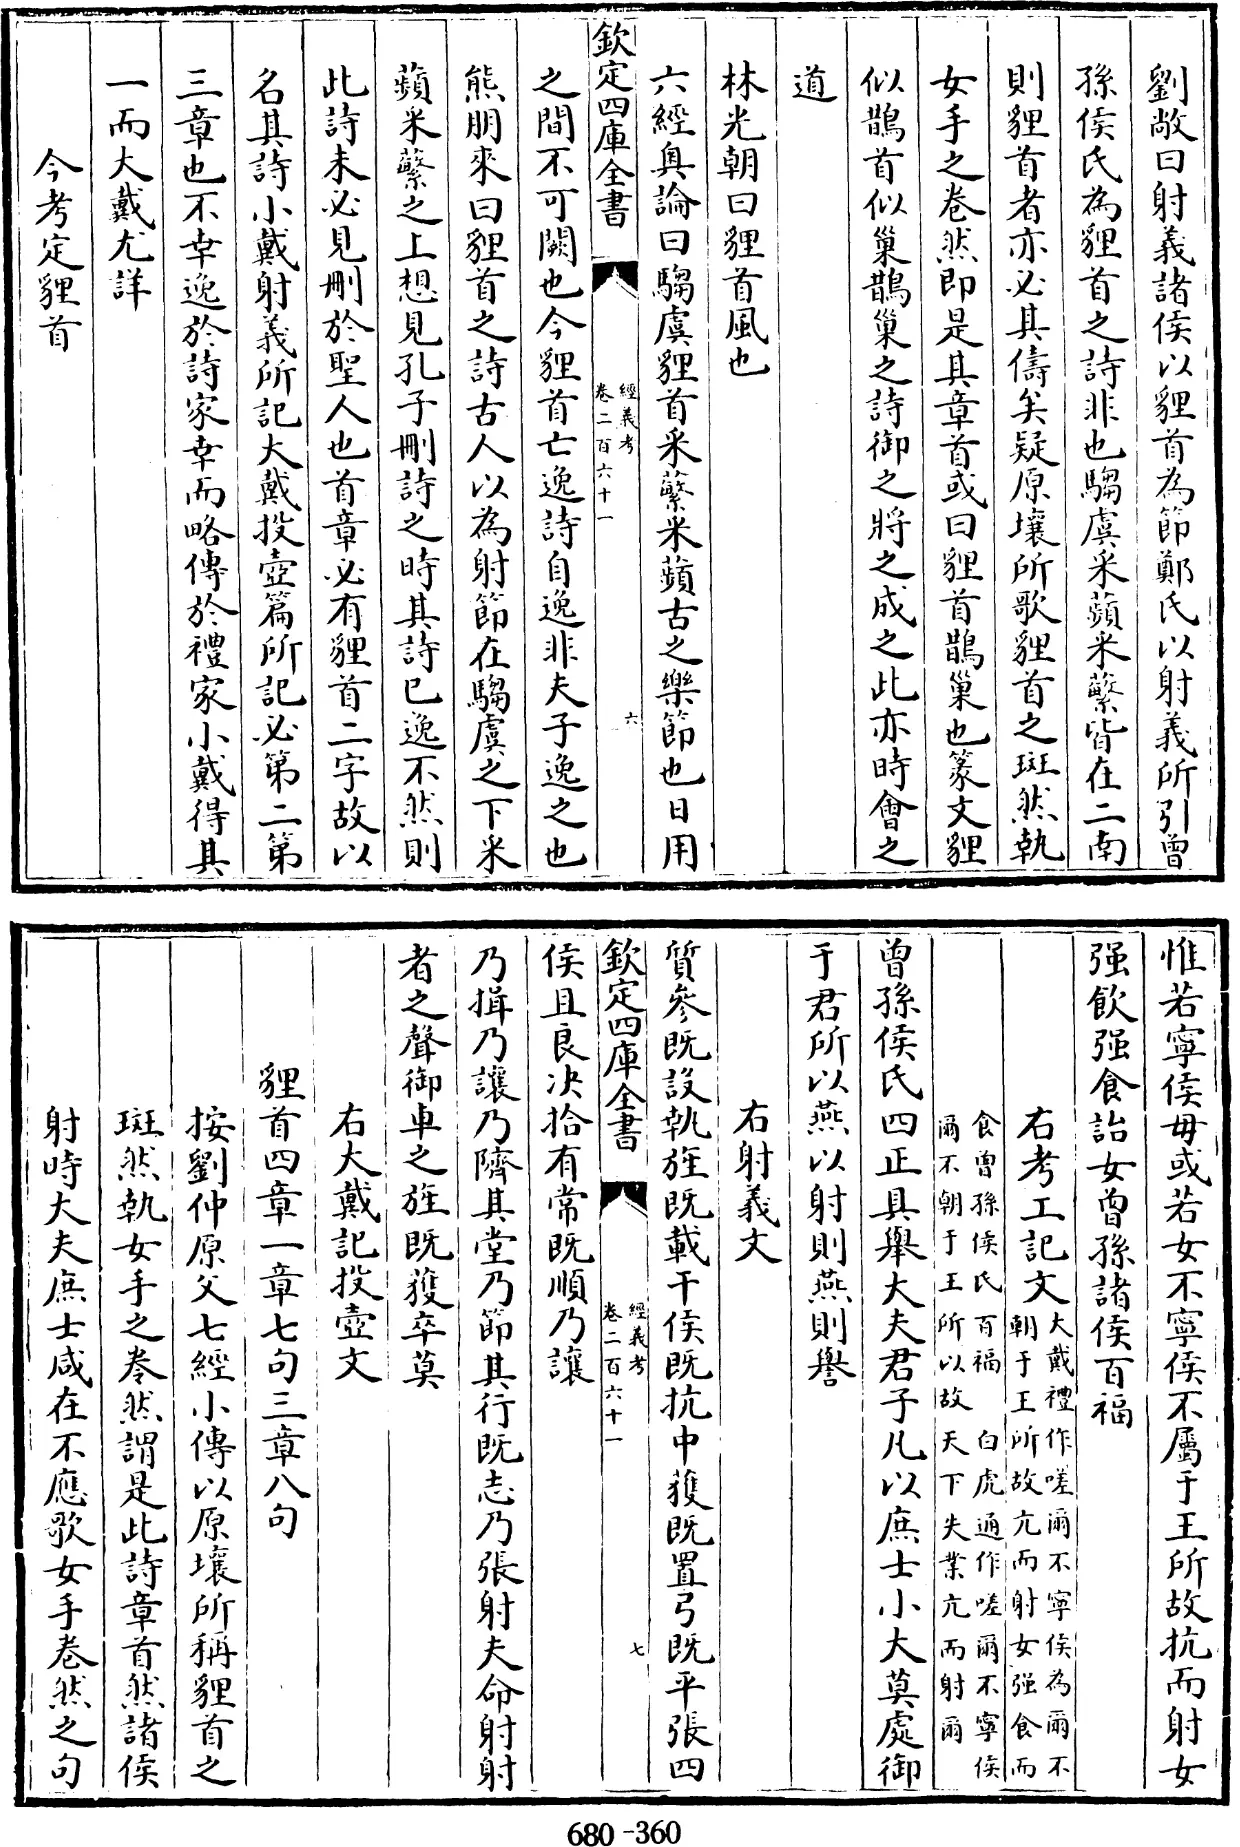 劉敞曰射義諸侯以貍首為節鄭氏以射義所引曾
孫侯氏為貍首之詩非也騶虞采蘋采蘩皆在二南
則貍首者亦必其儔矣疑原壤所歌貍首之斑然執
女手之卷然即是其章首或曰貍首鵲巢也篆文貍
似鵲首似巢鵲巢之詩御之將之成之此亦時會之
道
林光朝曰貍首風也
六經奥論曰騶虞貍首采蘩采蘋古之樂節也日用
欽定四庫全書
經義考
卷二百六十一
六
之間不可闕也今貍首亡逸詩自逸非夫子逸之也
熊朋來曰貍首之詩古人以為射節在騶虞之下采
蘋采蘩之上想見孔子刪詩之時其詩已逸不然則
此詩未必見刪於聖人也首章必有貍首二字故以
名其詩小戴射義所記大戴投壺篇所記必第二第
三章也不幸逸於詩家幸而略傳於禮家小戴得其
一而大戴尤詳
今考定貍首
惟若寧侯毋或若女不寧侯不屬于王所故抗而射女
强飲强食詒女曾孫諸侯百福
右考工記文大戴禮作嗟爾不寧侯為爾不
朝于王所故亢而射女强食而
食曾孫侯氏百福 白虎通作嗟爾不寧侯
爾不朝于王所以故天下失業亢而射爾
曾孫侯氏四正具舉大夫君子凡以庶士小大莫處御
于君所以燕以射則燕則譽
右射義文
質參既設執旌既載干侯既抗中獲既置弓既平張四
欽定四庫全書
經義考
卷二百六十一
七
侯且良决拾有常既順乃讓
乃揖乃讓乃隮其堂乃節其行既志乃張射夫命射射
者之聲御車之旌既獲卒莫
右大戴記投壺文
貍首四章一章七句三章八句
按劉仲原父七經小傳以原壤所稱貍首之
斑然執女手之卷然謂是此詩章首然諸侯
射時大夫庶士咸在不應歌女手卷然之句
680-360